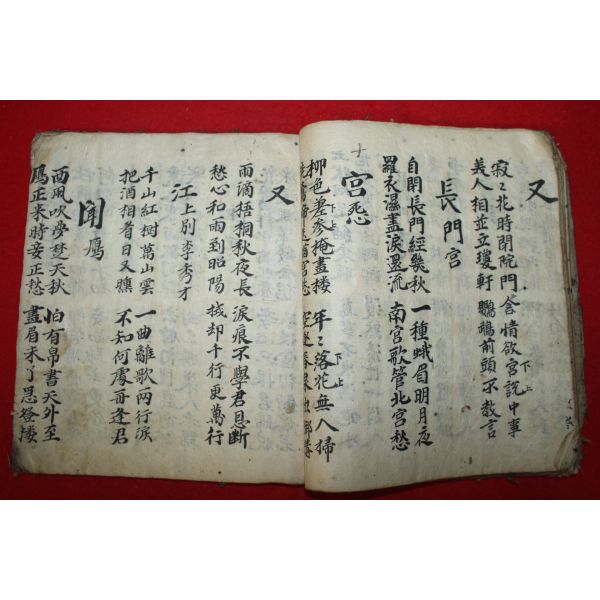 又
寂〻北時閇院門 含情欲宮説中事
美人相並立瓊軒 鸚鵡前頭不敢言
長門宮
自閇長門經幾秋 一種蛾眉明月夜
羅衣濕盡淚還流 南宮歌管北宮愁
宮怨
柳色差參掩畫楼 年〻落花無人掃
宮愁 空逐春泉
又
雨滴梧桐秋夜長 淚痕不學君恩断
愁心和雨到昭陽 拭却千行更萬行
江上別李秀才
千山紅樹萬山雲 一曲離歌两行淚
把酒相看日又曛 不知何處再逢君
聞鴈
西風吹夢楚天秋 怕有帛書天外至
鴈正来時妾正愁 畫眉未了思登楼